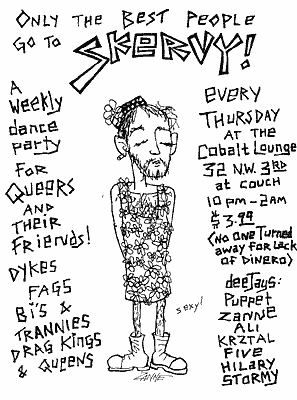 Only The Best People
Go To SKERVY!
A
Weekly
dance
party
For
Queers
AND
THEIR
Friends!
DYKES
FAGS
Bi's &
TRANNIES
DRAG KINGS
& QUEENS
EVERY
THURSDAY
AT THE
Cobalt Lounge
32 N.W. 3RD
at couch
10 pm - 2AM
$3.99
(No one Turned
away for Lack
of DINERO)
deeJays:
Puppet
ZANNE
ALI
KRZTAL
FIVE
HILARY
STORMY
sexy!
ZANNE